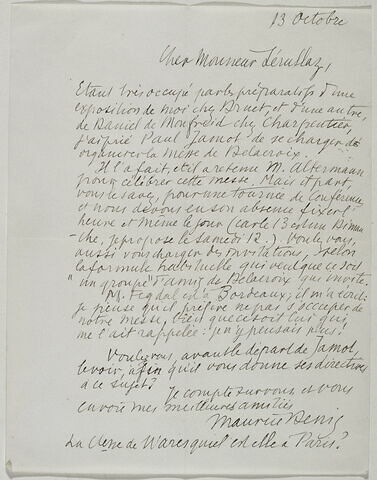 13 Octobre
Cher Monsieur Sérullaz,
Etant très occupé par les préparatifs d'une
exposition de moi chez Druet et d'une autre,
de Daniel de Monfreid chez Charpentier,
j'ai prié Paul Jamot de se charger d'
organiser la messe de Delacroix.
Il l'a fait, et il a retenu M. Altermann
pour célébrer cette messe. Mais il part
vous le savez, pour une tournée de Conférences
et nous devons en son absence fixer l'
heure et même le jour (car le 13 est un Diman
che, je propose le Samedi 12.). Voulez vous
aussi vous charger des invitations, selon
la formule habituelle qui veut que ce soit
"un groupe" d'amis de Delacroix qui invite.
M. Fegdal est à Bordeaux; il m'a écrit:
je pense qu'il préfère ne pas s'occuper de
notre messe, bien que ce soit lui qui
me l'ait rappelée: je n'y pensais plus!
Voulez vous, avant le départ de Jamot,
le voir, afin qu'il vous donne ses directives
à ce sujet?
Je compte sur vous et vous
envoie mes meilleures amitiés
Maurice Denis
La Ctesse de Waresquiel est elle à Paris?